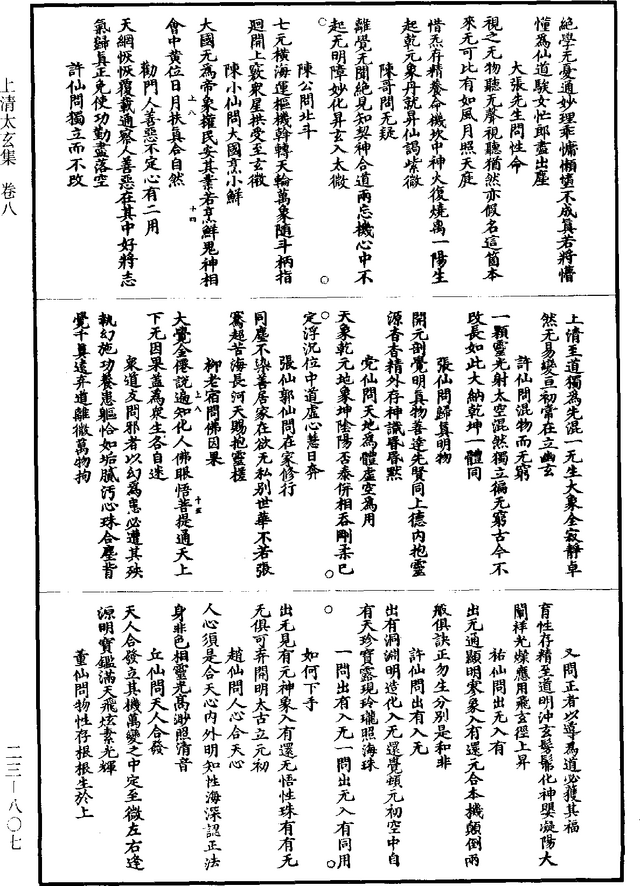 上清太玄集　卷八
二三—八〇七
絕學无憂通妙理乖慵懶墮不成真若將懵
懂為仙道駿女忙郎盡出塵
大張先生問性命
視之无物聽无聲視聽猶然亦假名這箇本
來无可比有如風月照天庭
惜炁存精養命機坎中神火復燒离一陽生
起乾元象丹就昇仙謁紫微
陳哥問无疑
離覺无聞絕見知契神合道兩忘機心中不
起无明障妙化昇玄入太微
陳公問北斗
七元橫海運樞機斡轉天輪萬象隨斗柄指
迴開上竅衆星拱受至玄微
陳小仙問大國烹小鮮
大國无為帝象權民安其業若烹鮮鬼神相
上八　十四
會中黃位日月扶真合自然
勸門人善惡不定心有二用
天網恢恢覆載通察人善惡在其中好將志
氣歸真正免使功勤盡落空
許仙問獨立而不改
上清至道獨為先混一元生大象全寂靜卓
然无易變亘初常在立幽玄
許仙問混物而无窮
一顆靈光射太空混然獨立徧无窮古今不
改長如此大納乾坤一體同
張仙問歸真明物
開元剖覺明真物善達先賢同上德内抱靈
源杳杳精外存神識昏昏黙
党仙問天地為體虛空為用
天象乾元地象坤陰陽否泰併相吞剛柔已
定浮沉位中道虛心慧日奔
張仙郭仙問在家修行
同塵不染善居家在欲无私别世華不若張
騫超苦海長河天賜抱靈槎
柳老宿問佛因果
上八　十五
大覺金僊說遍知化人佛眼悟菩提通天上
下无因果蓋為衆生各自迷
衆道友問邪者以幻為患必遭其殃
執幻施功養患軀恰如垢膩汚心珠合塵背
覺千真遠弃道離微萬物拘
又問正者以導為道必獲其福
育性存精至道明沖玄髣髴化神嬰凝陽大
闡祥光燦應用飛玄徑上昇
祐仙問出无入有
出无通顯明寒象入有還元合本機顛倒兩
般俱訣正勿生分別是和非
許仙問出有入无
出有洞淵明造化入无還覺頓元初空中自
有天珍寶露現玲瓏照海珠
一問出有入无一問出无入有同用
如何下手
出无見有元神象入有還无悟性珠有有无
无俱可弃開明太古立元初
趙仙問人心合天心
人心須是合天心内外明知性海深認正法
身非色相靈光高渺照淸音
丘仙問天人合發
天人合發立其機萬變之中定至微左右逢
源明寶鑑滿天飛炫素光輝
董仙問物性存根根生於上